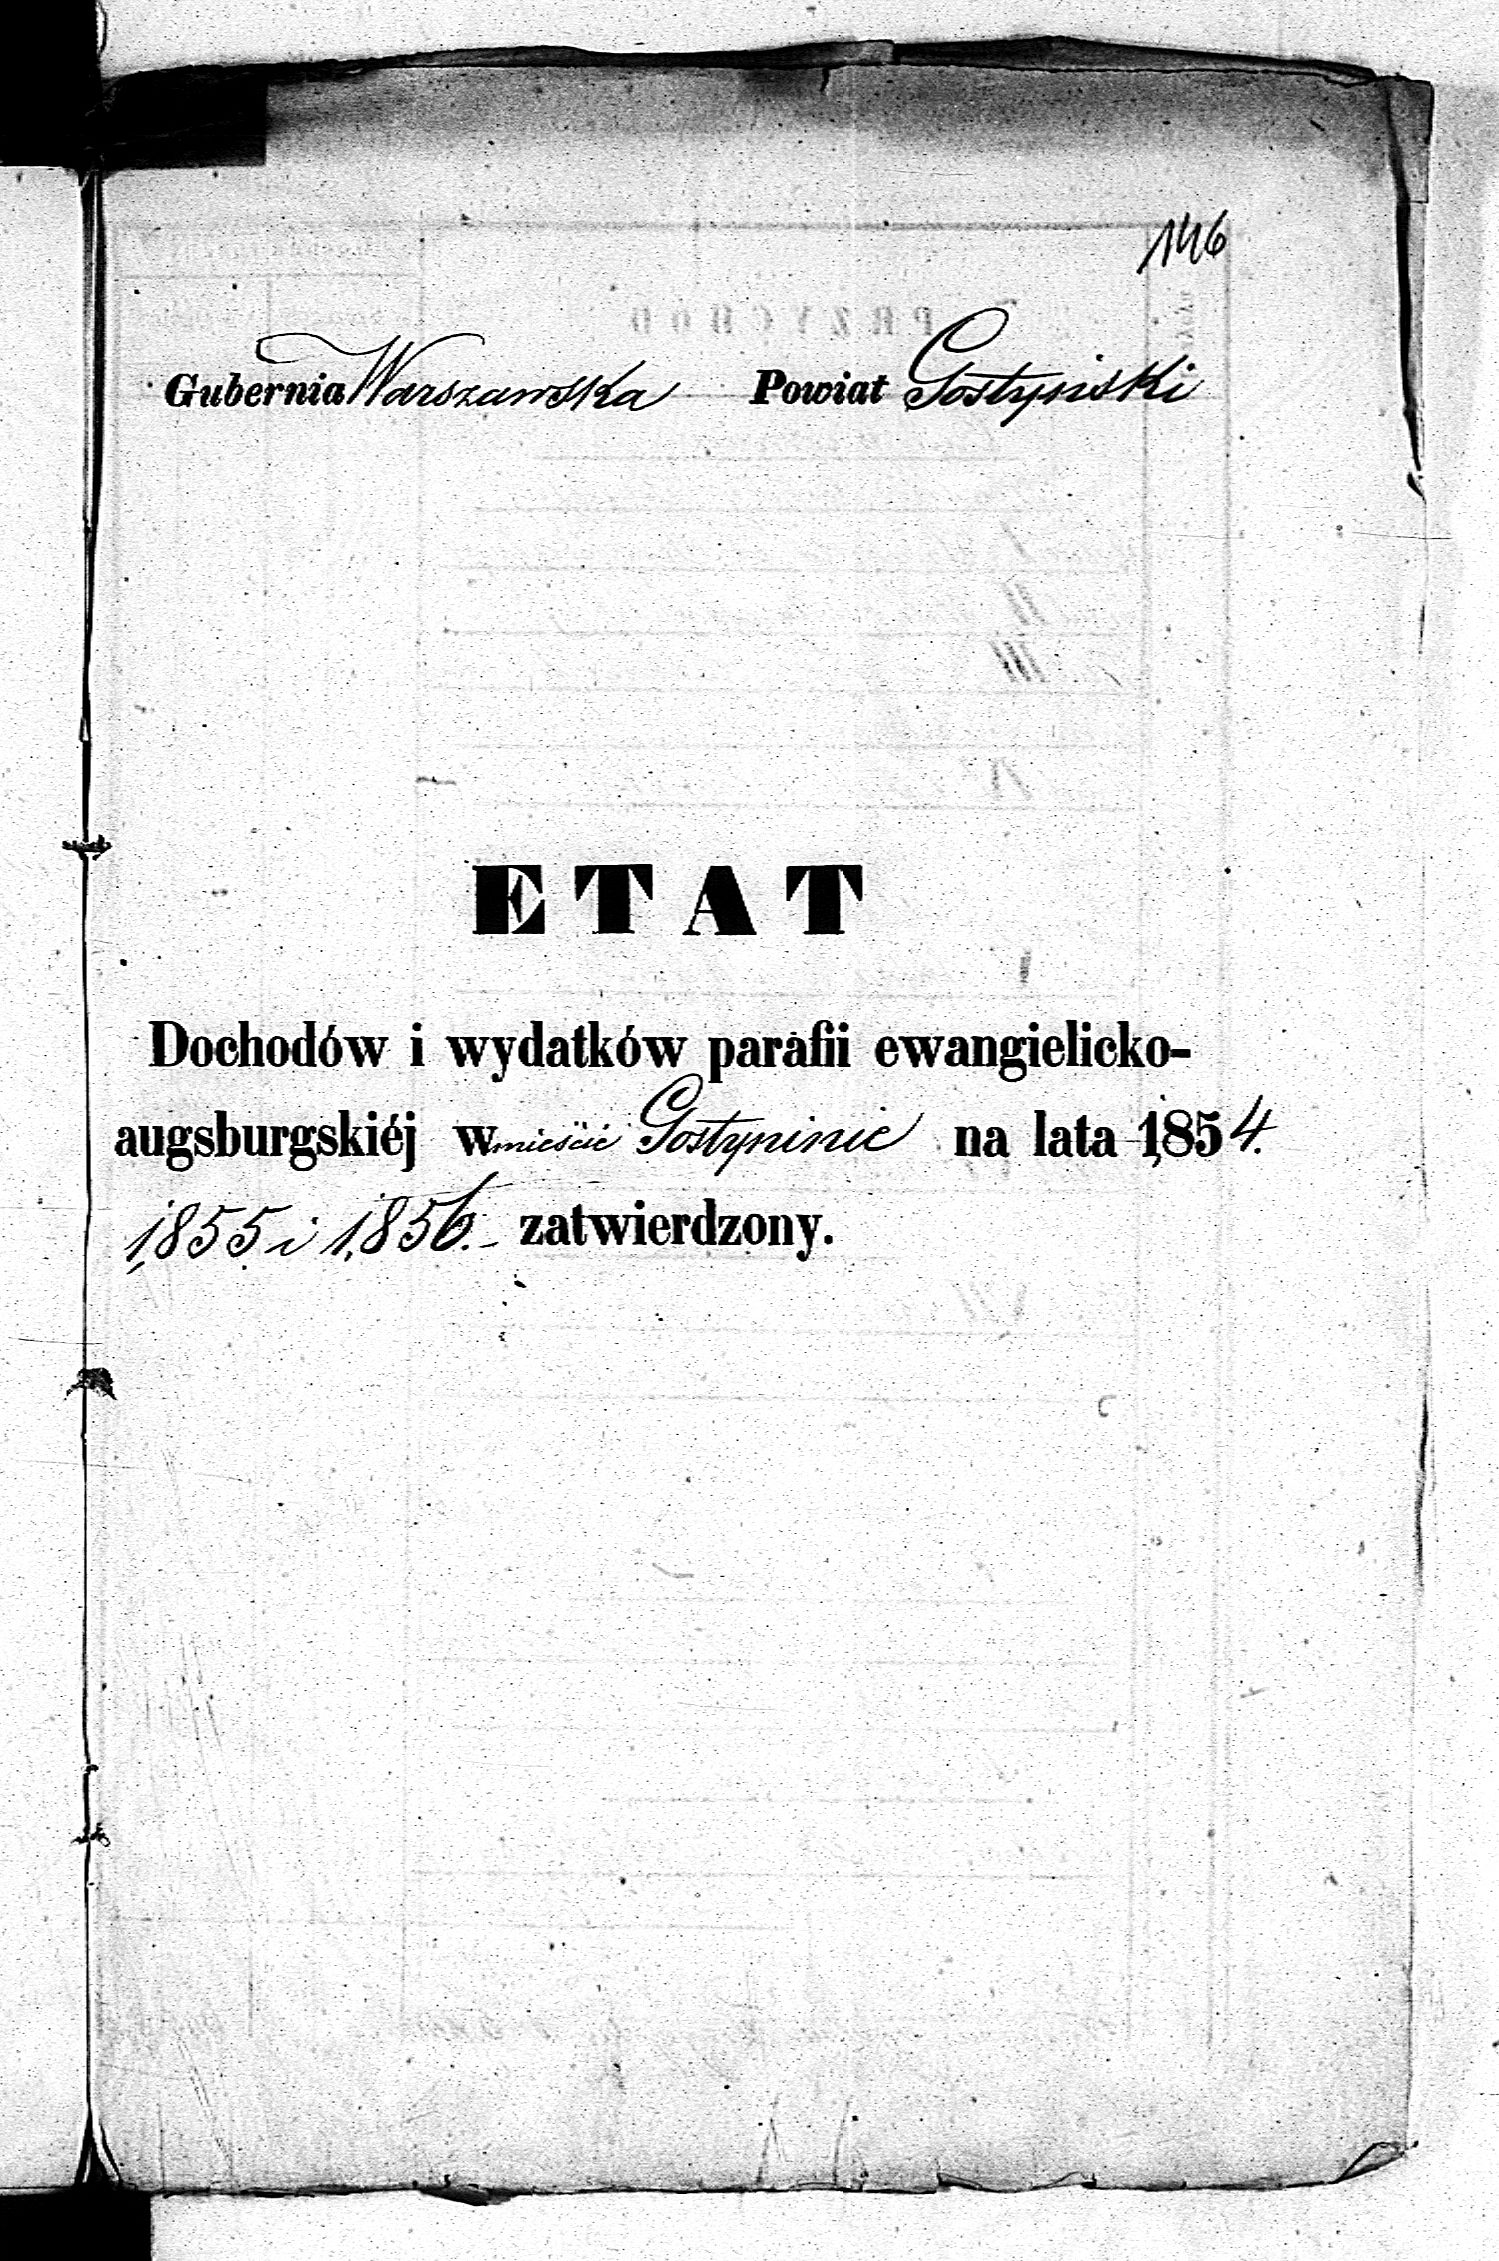 146
Gubernia Warszawska Powiat Gostyniski
ETAT
Dochodów i wydatków parafii ewangielicko-
augsburgskiéj w mieście Gostyninie na lata 1854.
1855 i 1856.- zatwierdzony.
PRZYCHÓD